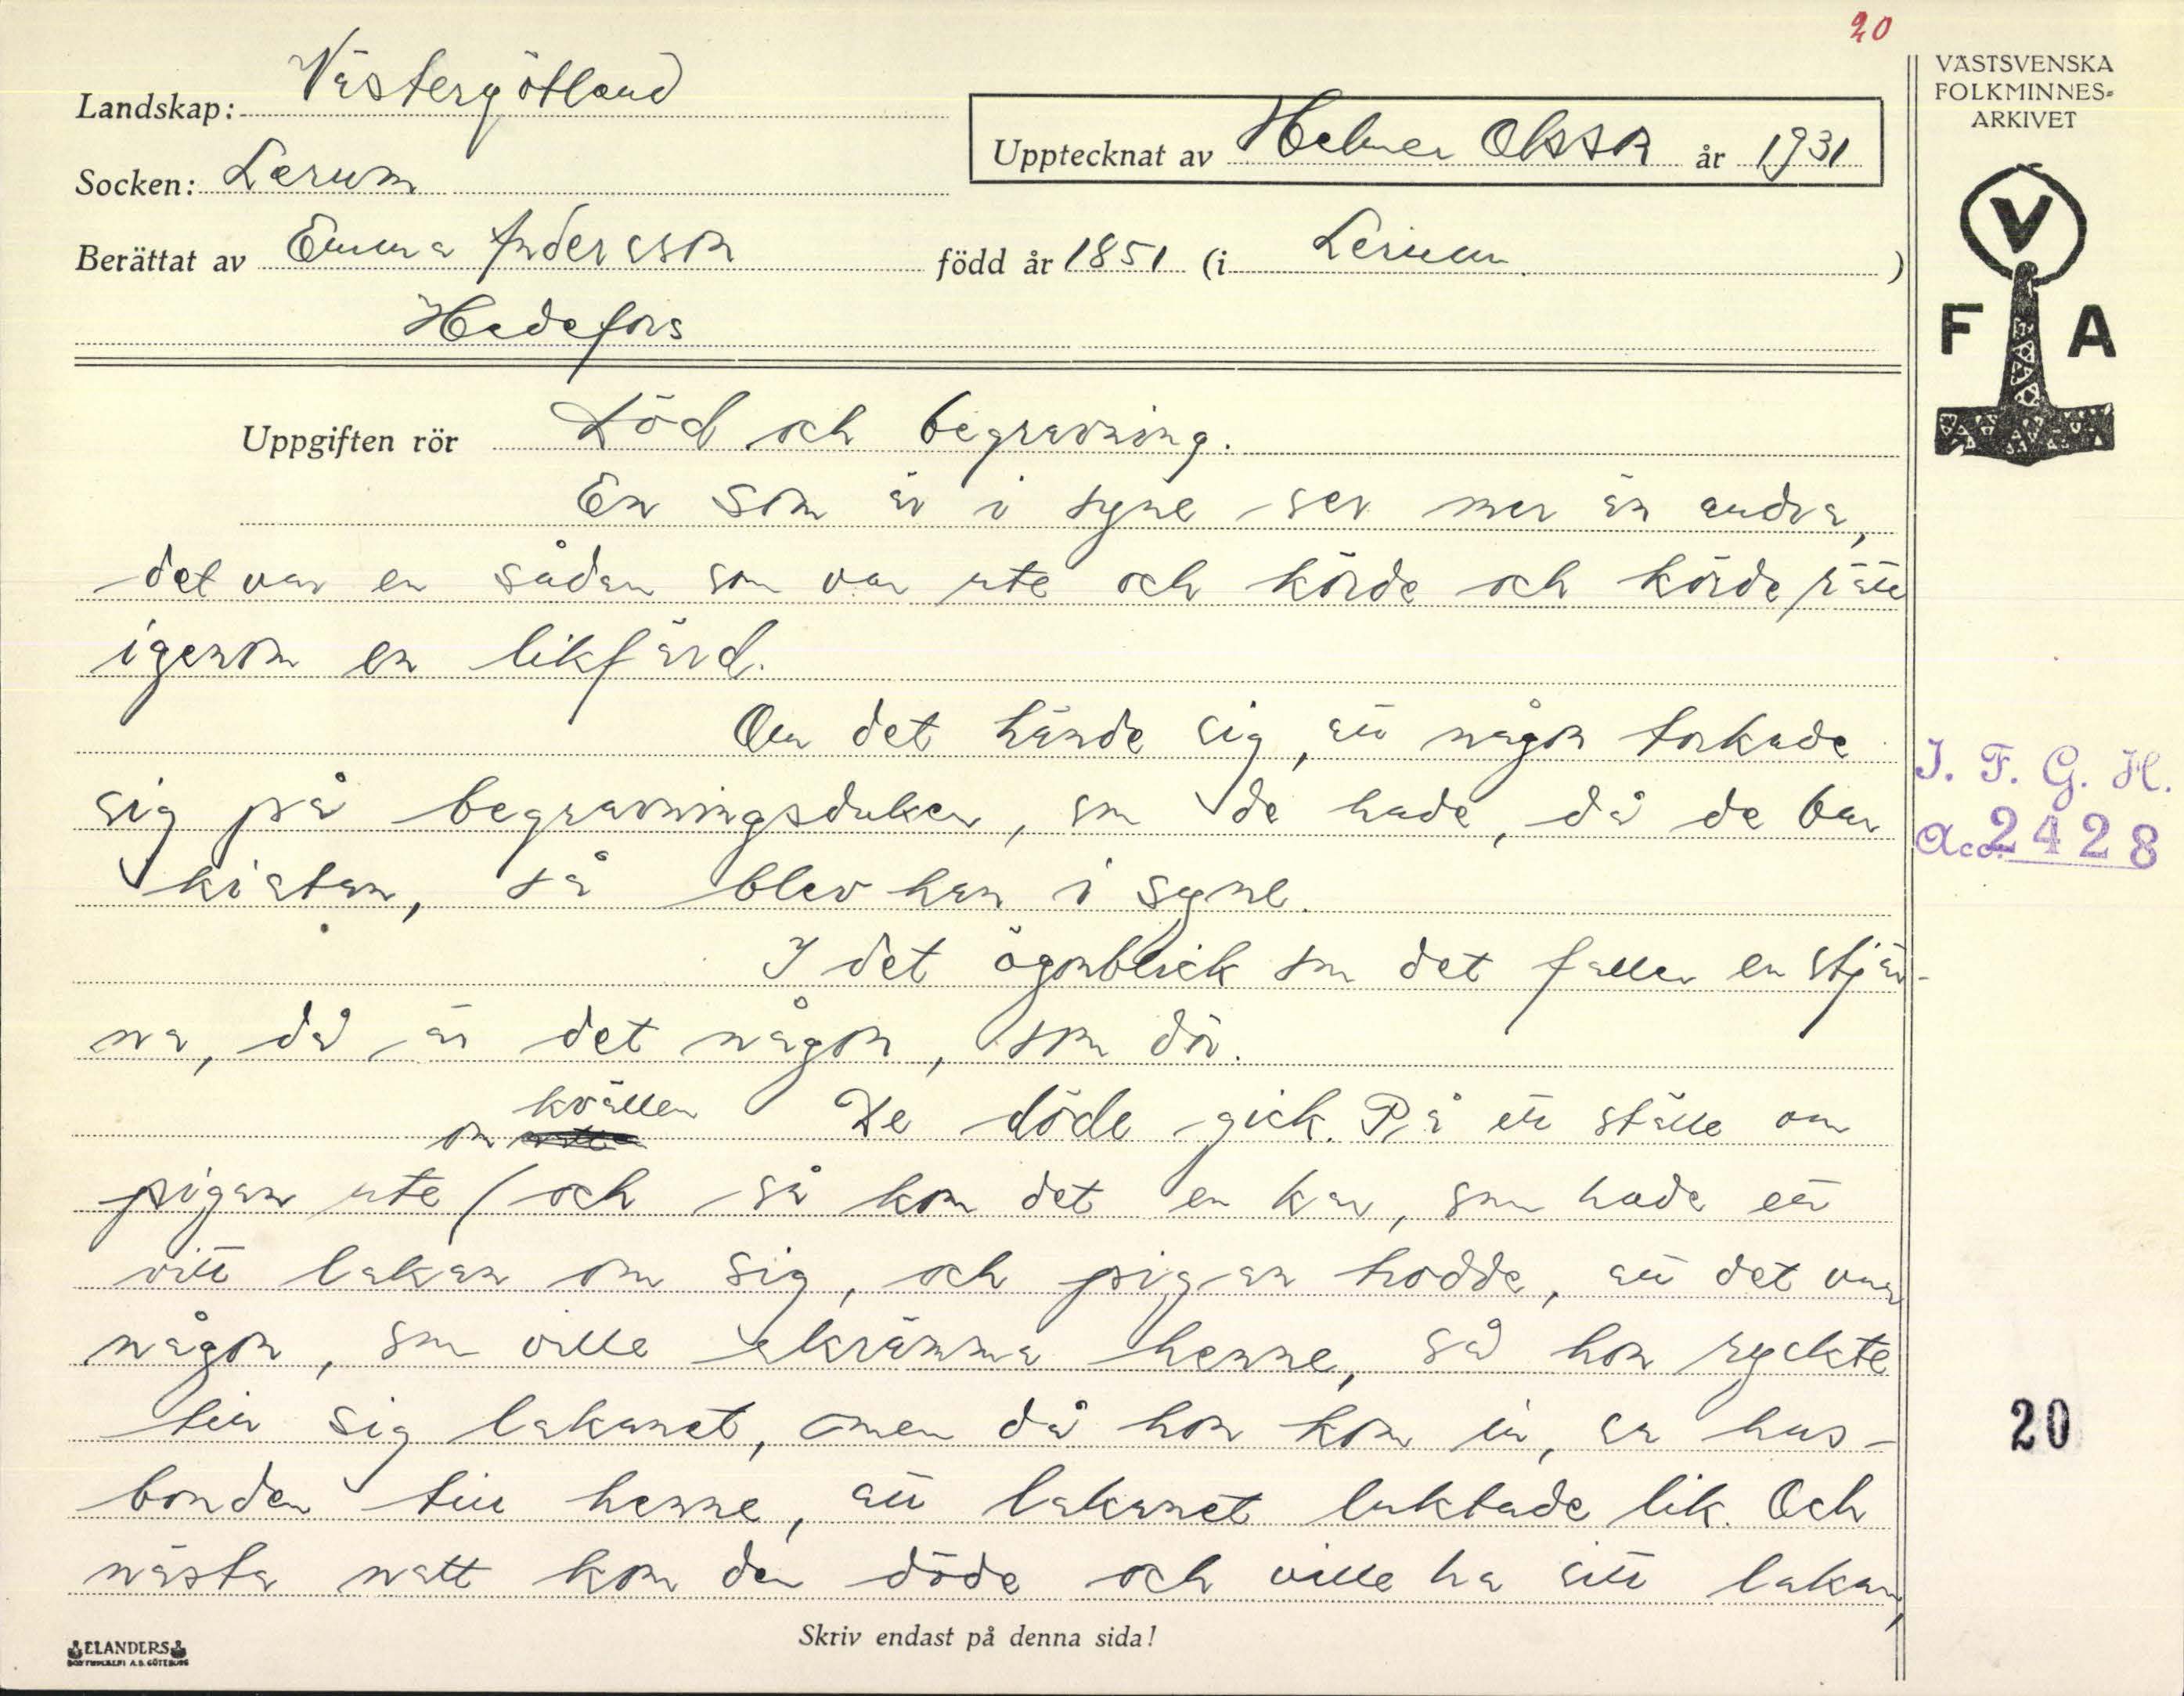 20
VÄSTSVENSKA
FOLKMINNES-
ARKIVET
Landskap: Västergötland
Upptecknat av Helmer Olsson år 1931
Socken: Lerum
Berättat av Emma Andersson född år 1851 (i Lerum.)
Hedefors
V
F A
Uppgiften rör Död och begravning.
En som är i syne ser mer än andra,
det var en sådan som var ute och körde och körde rätt
igenom en likfärd.
Om det hände sig, att någon torkade
sig på begravningsduken, som de hade, då de bar
kistan, så blev han i syne.
I det ögonblick som det faller en stjär-
na, då är det någon, som dör.
De döde gick. På ett ställe var
om kvällen
pigan ute / och så kom det en kar, som hade ett
vitt lakan om sig, och pigan trodde, att det var
någon, som ville skrämma henne, så hon ryckte
till sig lakanet, men då hon kom in, sa hus-
bonden till henne, att lakanet luktade lik. Och
nästa natt kom den döde och ville ha sitt lakan,
I. F. G. H.
Acc. 2428
20
Skriv endast på denna sida!
ELANDERS
BOKTRYCKERI A.B. GÖTEBORG